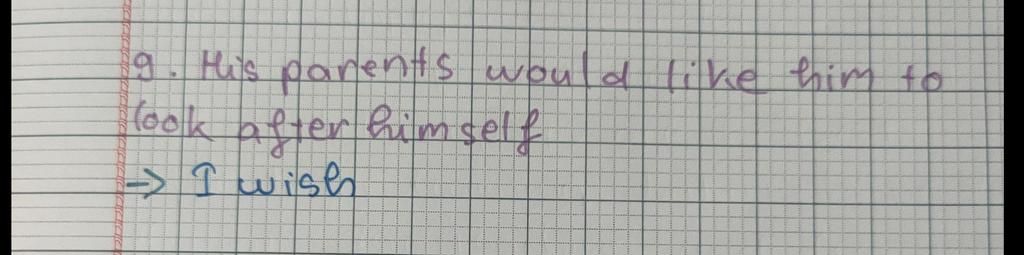 9. His parents would like him to
look after himself
→ I wish